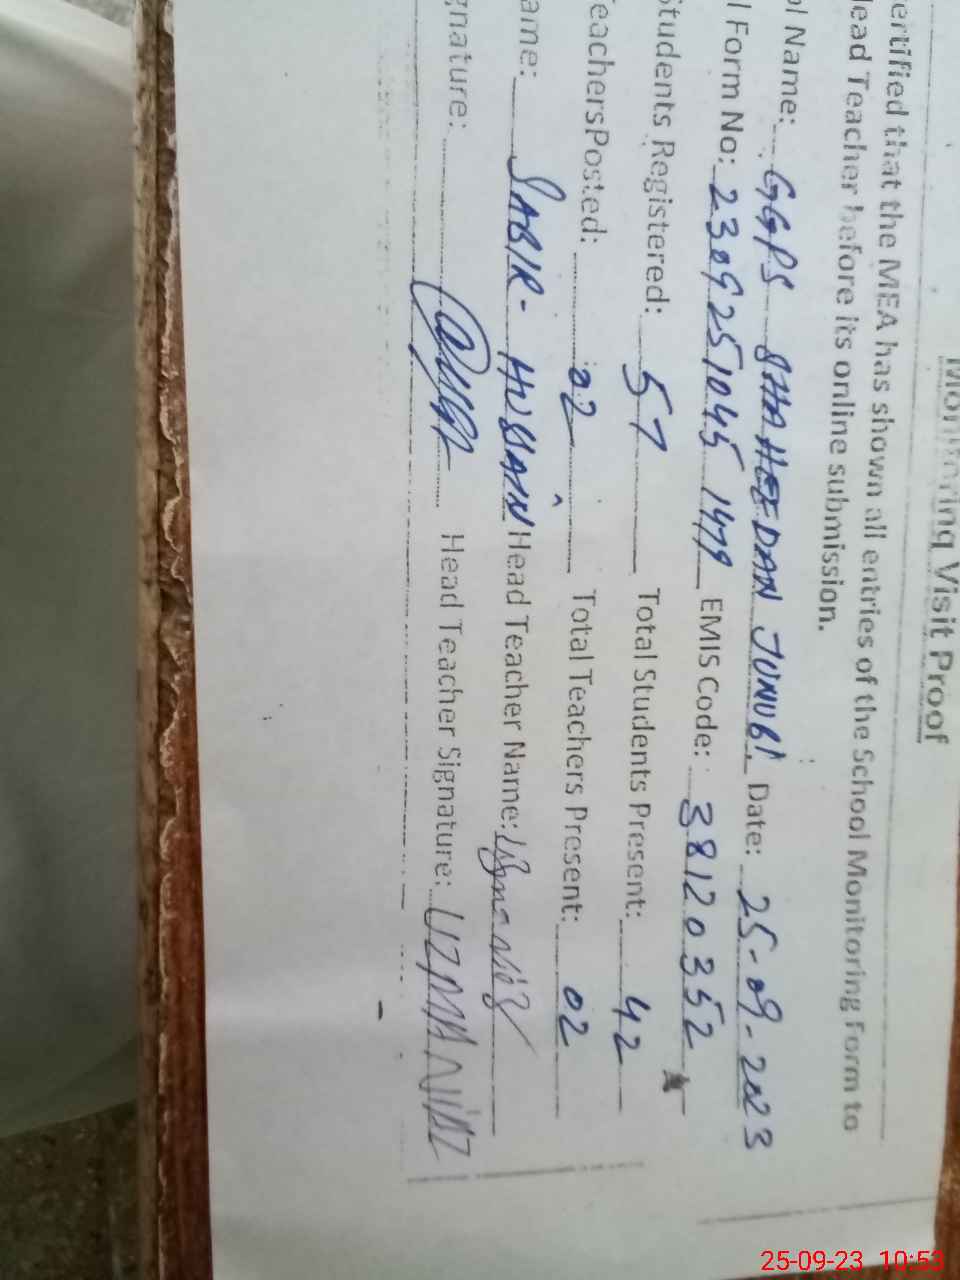 Monitoring Visit Proof
ertified that the MEA has shown all entries of the School Monitoring Form to
Head Teacher before its online submission.
ol Name: GGPS SHAHEEDAN JUNUBI Date: 25-09-2023
l Form No: 2309251045 1479 EMIS Code: 38120352
Students Registered: 57 Total Students Present: 42
TeachersPosted: 02 Total Teachers Present: 02
ame: SABIR HUSSAIN Head Teacher Name:
gnature: Head Teacher Signature: UZMA NIAZ
25-09-23 10:53